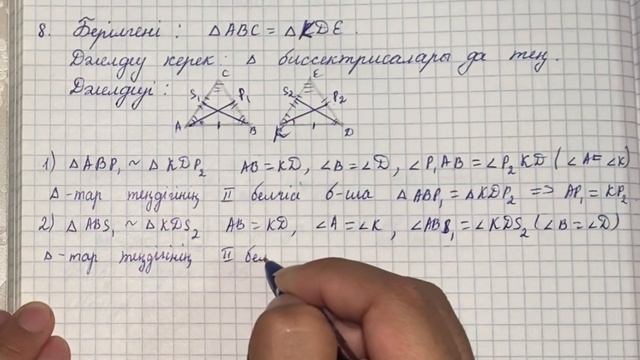 8. Берілгені: △ABC = △KDE.
Дәлелдеу керек: △ биссектрисалары да тең.
Дәлелдеуі:
C
S₁ P₁
A B
E
S₂ P₂
K D
1) △ABP₁ ~ △KDP₂ AB = KD, ∠B = ∠D, ∠P₁AB = ∠P₂KD (∠A = ∠K)
△-тар теңдігінің II белгісі б-ша △ABP₁ = △KDP₂ => AP₁ = KP₂.
2) △ABS₁ ~ △KDS₂ AB = KD, ∠A = ∠K, ∠ABS₁ = ∠KDS₂ (∠B = ∠D)
△-тар теңдігінің II бел